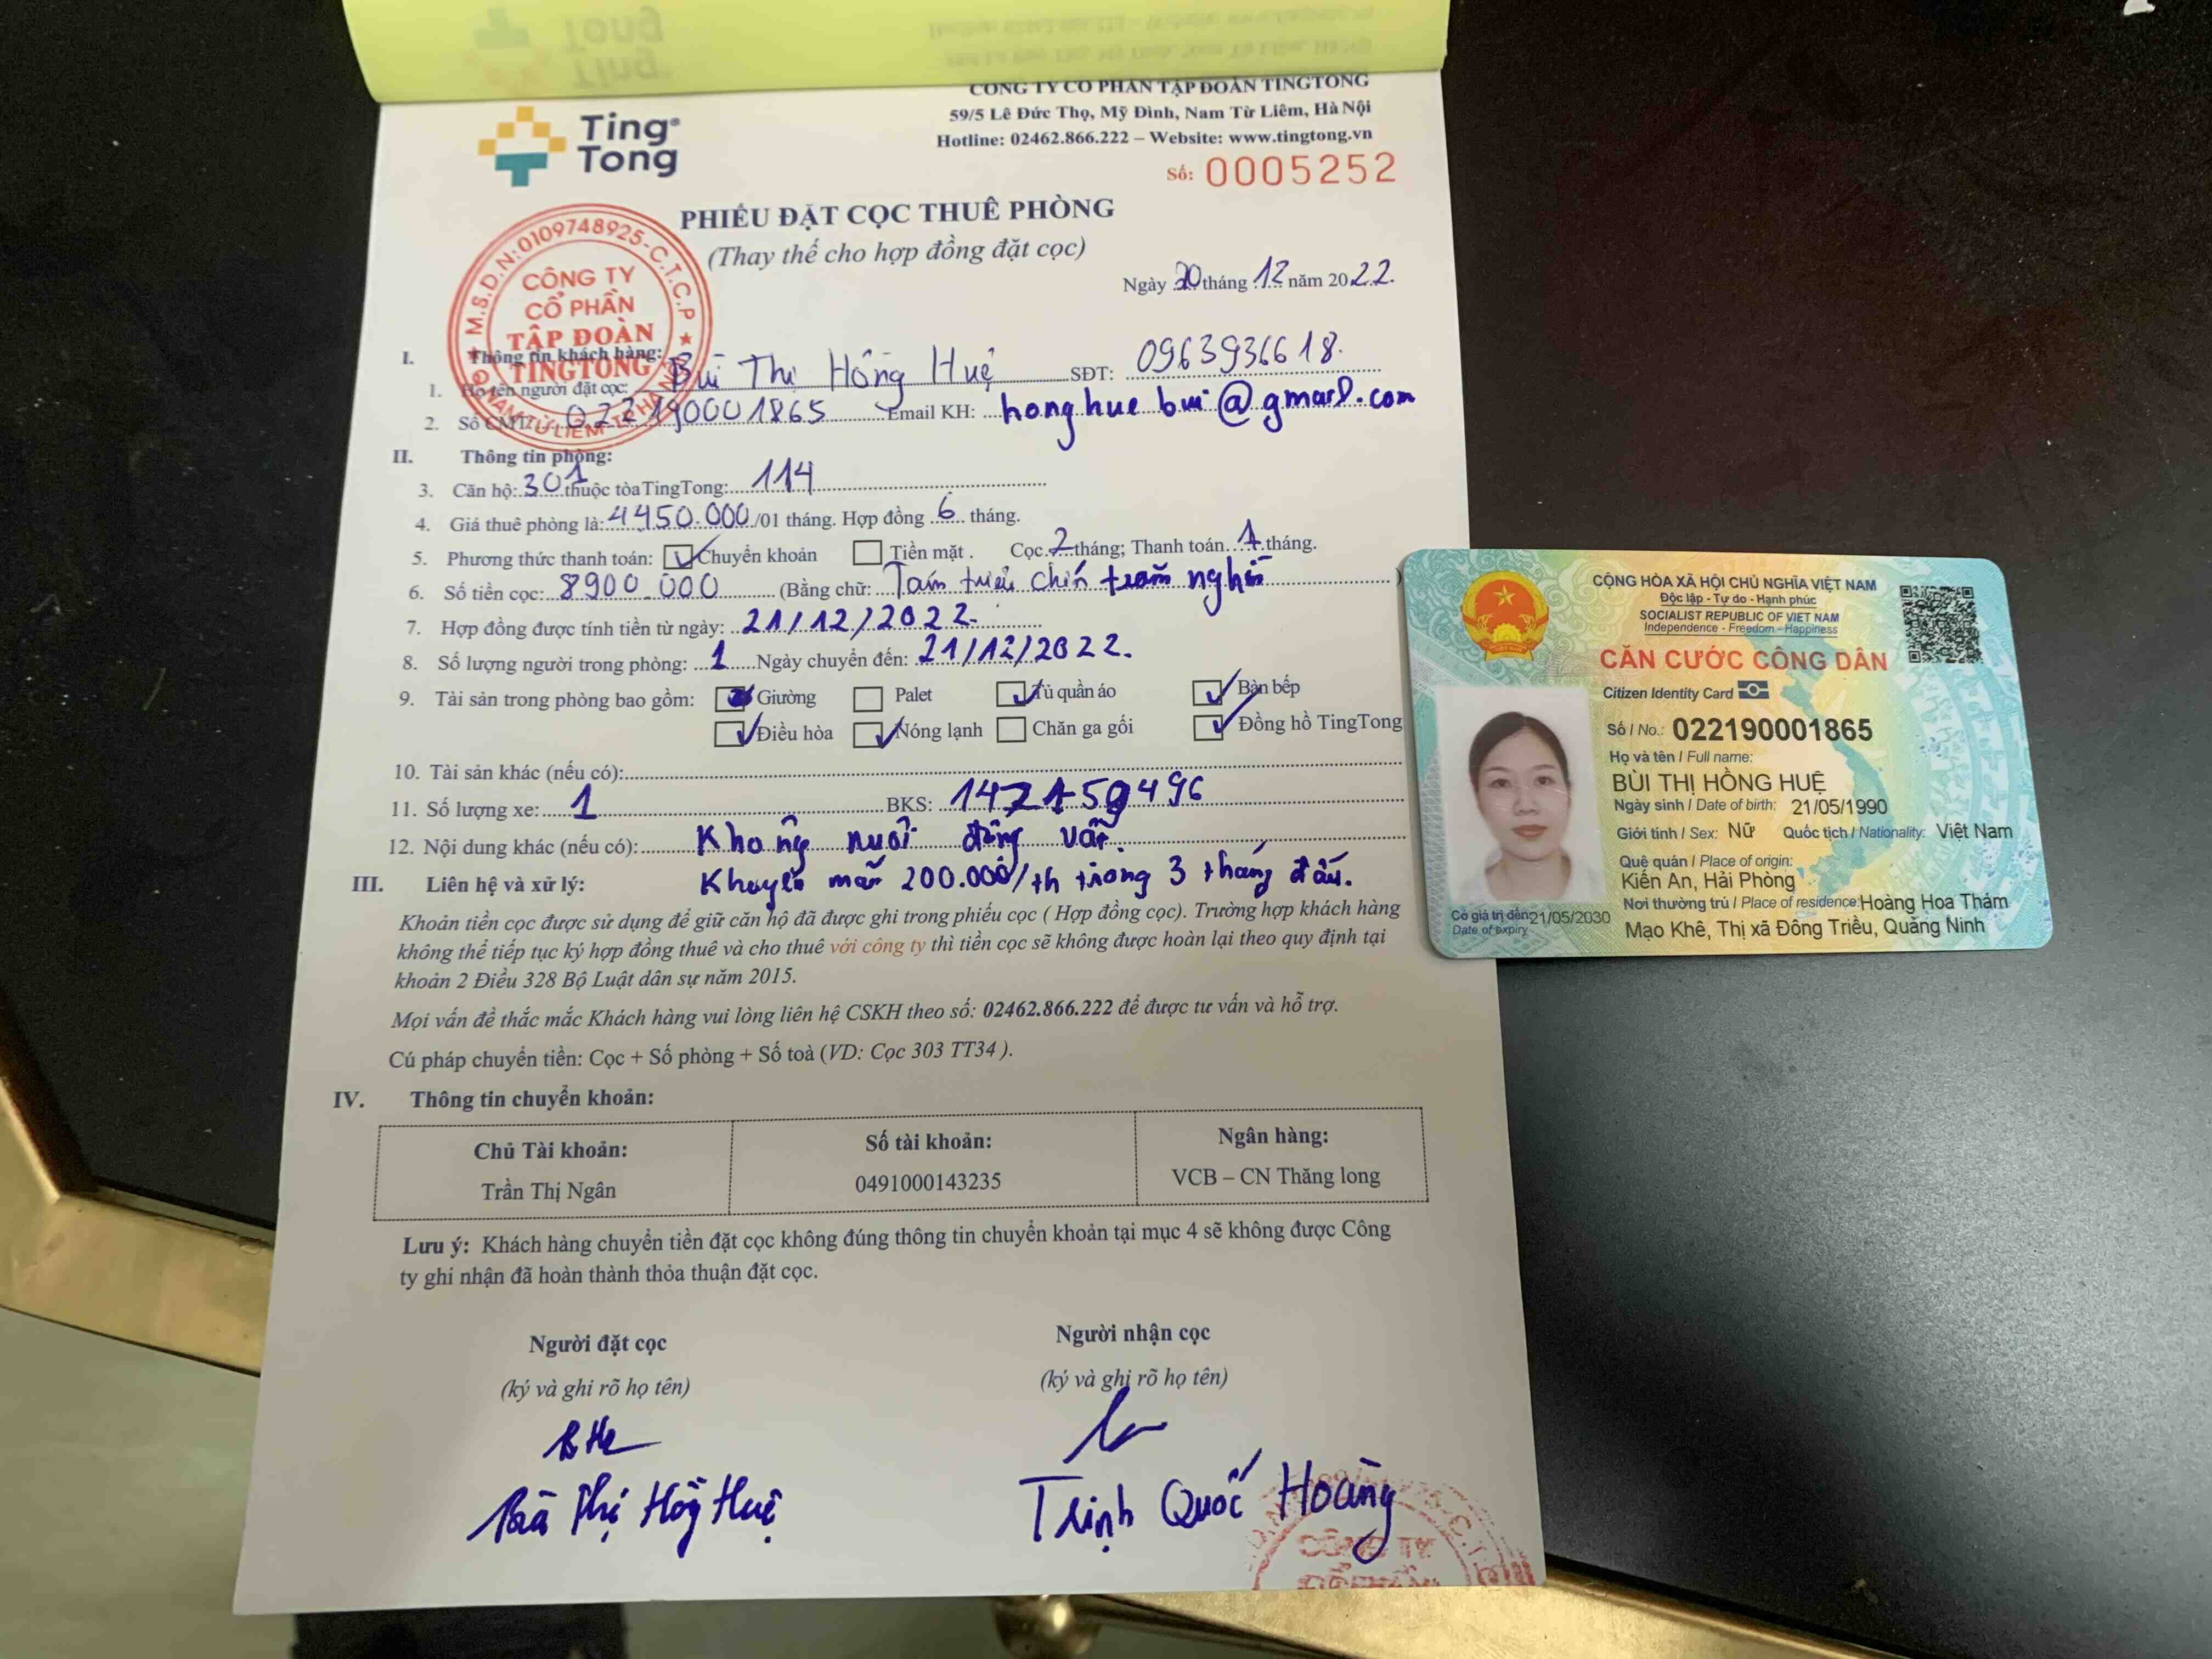 CÔNG TY CỔ PHẦN TẬP ĐOÀN TINGTONG
59/5 Lê Đức Thọ, Mỹ Đình, Nam Từ Liêm, Hà Nội
Hotline: 02462.866.222 – Website: www.tingtong.vn
Ting Tong
Số: 0005252
PHIẾU ĐẶT CỌC THUÊ PHÒNG
(Thay thế cho hợp đồng đặt cọc)
Ngày 20 tháng 12 năm 2022.
M.S.D.N:0109748925-C.T.C.P
CÔNG TY
CỔ PHẦN
TẬP ĐOÀN
TINGTONG
I. Thông tin khách hàng:
1. Họ tên người đặt cọc: Bùi Thị Hồng Huệ SĐT: 0963936618.
2. Số CMT: 022190001865 Email KH: honghue bui@gmail.com
II. Thông tin phòng:
3. Căn hộ: 301 thuộc tòa TingTong: 114
4. Giá thuê phòng là: 4450.000/01 tháng. Hợp đồng 6 tháng.
5. Phương thức thanh toán: ☑ Chuyển khoản ☐ Tiền mặt . Cọc 2 tháng; Thanh toán 1 tháng.
6. Số tiền cọc: 8900.000 (Bằng chữ: Tám triệu chín trăm nghìn )
7. Hợp đồng được tính tiền từ ngày: 21/12/2022.
8. Số lượng người trong phòng: 1 Ngày chuyển đến: 21/12/2022.
9. Tài sản trong phòng bao gồm: Giường ☐ Palet ☑ Tủ quần áo ☑ Bàn bếp
☑ Điều hòa ☑ Nóng lạnh ☐ Chăn ga gối ☑ Đồng hồ TingTong
10. Tài sản khác (nếu có):
11. Số lượng xe: 1 BKS:
12. Nội dung khác (nếu có): Không nuôi động vật.
Khuyến mãi 200.000/th trong 3 tháng đầu.
III. Liên hệ và xử lý:
Khoản tiền cọc được sử dụng để giữ căn hộ đã được ghi trong phiếu cọc ( Hợp đồng cọc). Trường hợp khách hàng
không thể tiếp tục ký hợp đồng thuê và cho thuê với công ty thì tiền cọc sẽ không được hoàn lại theo quy định tại
khoản 2 Điều 328 Bộ Luật dân sự năm 2015.
Mọi vấn đề thắc mắc Khách hàng vui lòng liên hệ CSKH theo số: 02462.866.222 để được tư vấn và hỗ trợ.
Cú pháp chuyển tiền: Cọc + Số phòng + Số toà (VD: Cọc 303 TT34 ).
IV. Thông tin chuyển khoản:
Chủ Tài khoản: Số tài khoản: Ngân hàng:
Trần Thị Ngân 0491000143235 VCB – CN Thăng long
Lưu ý: Khách hàng chuyển tiền đặt cọc không đúng thông tin chuyển khoản tại mục 4 sẽ không được Công
ty ghi nhận đã hoàn thành thỏa thuận đặt cọc.
Người đặt cọc Người nhận cọc
(ký và ghi rõ họ tên) (ký và ghi rõ họ tên)
Bùi Thị Hồng Huệ Trịnh Quốc Hoàng
CÔNG TY
CỘNG HÒA XÃ HỘI CHỦ NGHĨA VIỆT NAM
Độc lập - Tự do - Hạnh phúc
SOCIALIST REPUBLIC OF VIET NAM
Independence - Freedom - Happiness
CĂN CƯỚC CÔNG DÂN
Citizen Identity Card
Số / No.: 022190001865
Họ và tên / Full name:
BÙI THỊ HỒNG HUỆ
Ngày sinh / Date of birth: 21/05/1990
Giới tính / Sex: Nữ Quốc tịch / Nationality: Việt Nam
Quê quán / Place of origin:
Kiến An, Hải Phòng
Nơi thường trú / Place of residence: Hoàng Hoa Thám
Mạo Khê, Thị xã Đông Triều, Quảng Ninh
Có giá trị đến: 21/05/2030
Date of expiry